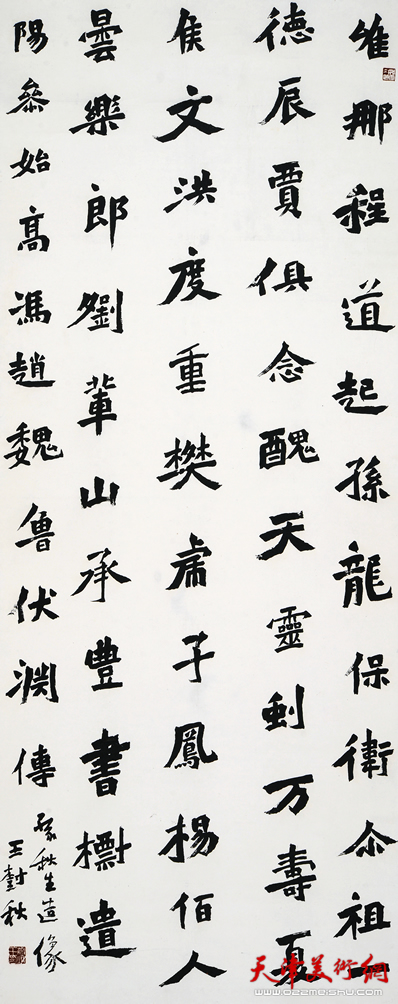 維那程道起孫龍保衛仚祖
德辰賈俱念醜天靈剑万壽夏
侯文洪度重樊虎子鳳楊伯人
曇樂郎劉輩山承豐書檦遣
陽祭始高馮趙魏魯伏渊傳
孫秋生造像
王對秋
天津美術網
www.022meishu.com